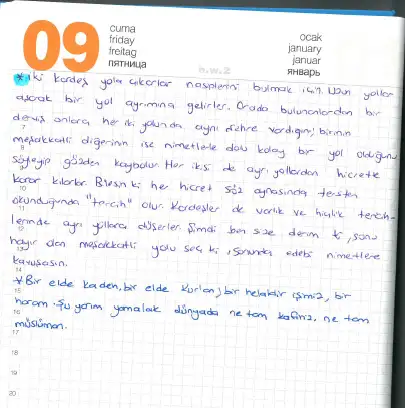 09
cuma
friday
freitag
пятница
ocak
january
januar
январь
* iki kardeş yola çıkarlar nasiplerini bulmak için. Uzun yollar
aşarak bir yol ayrımına gelirler. Orada bulunanlardan bir
derviş onlara, her iki yolunda aynı şehre vardığını; birinin
meşakkatli diğerinin ise nimetlerle dolu kolay bir yol olduğunu
söyleyip gözden kaybolur. Her ikisi de ayrı yollardan hicrette
karar kılarlar. Bilesin ki her hicret söz aynasında tersten
okunduğunda "tercih" olur. Kardeşler de varlık ve hiçlik tercih-
lerinde ayrı yollara düşerler. Şimdi ben size derim ki, sonu
hayır olan meşakkatli yolu seç ki, sonunda edebi nimetlere
kavuşasın.
* Bir elde kadeh, bir elde Kur'an; bir helaldir işimiz, bir
haram. Şu yarım yamalak dünyada ne tam kafiriz, ne tam
müslüman.
14
15
16
17
18
19
20